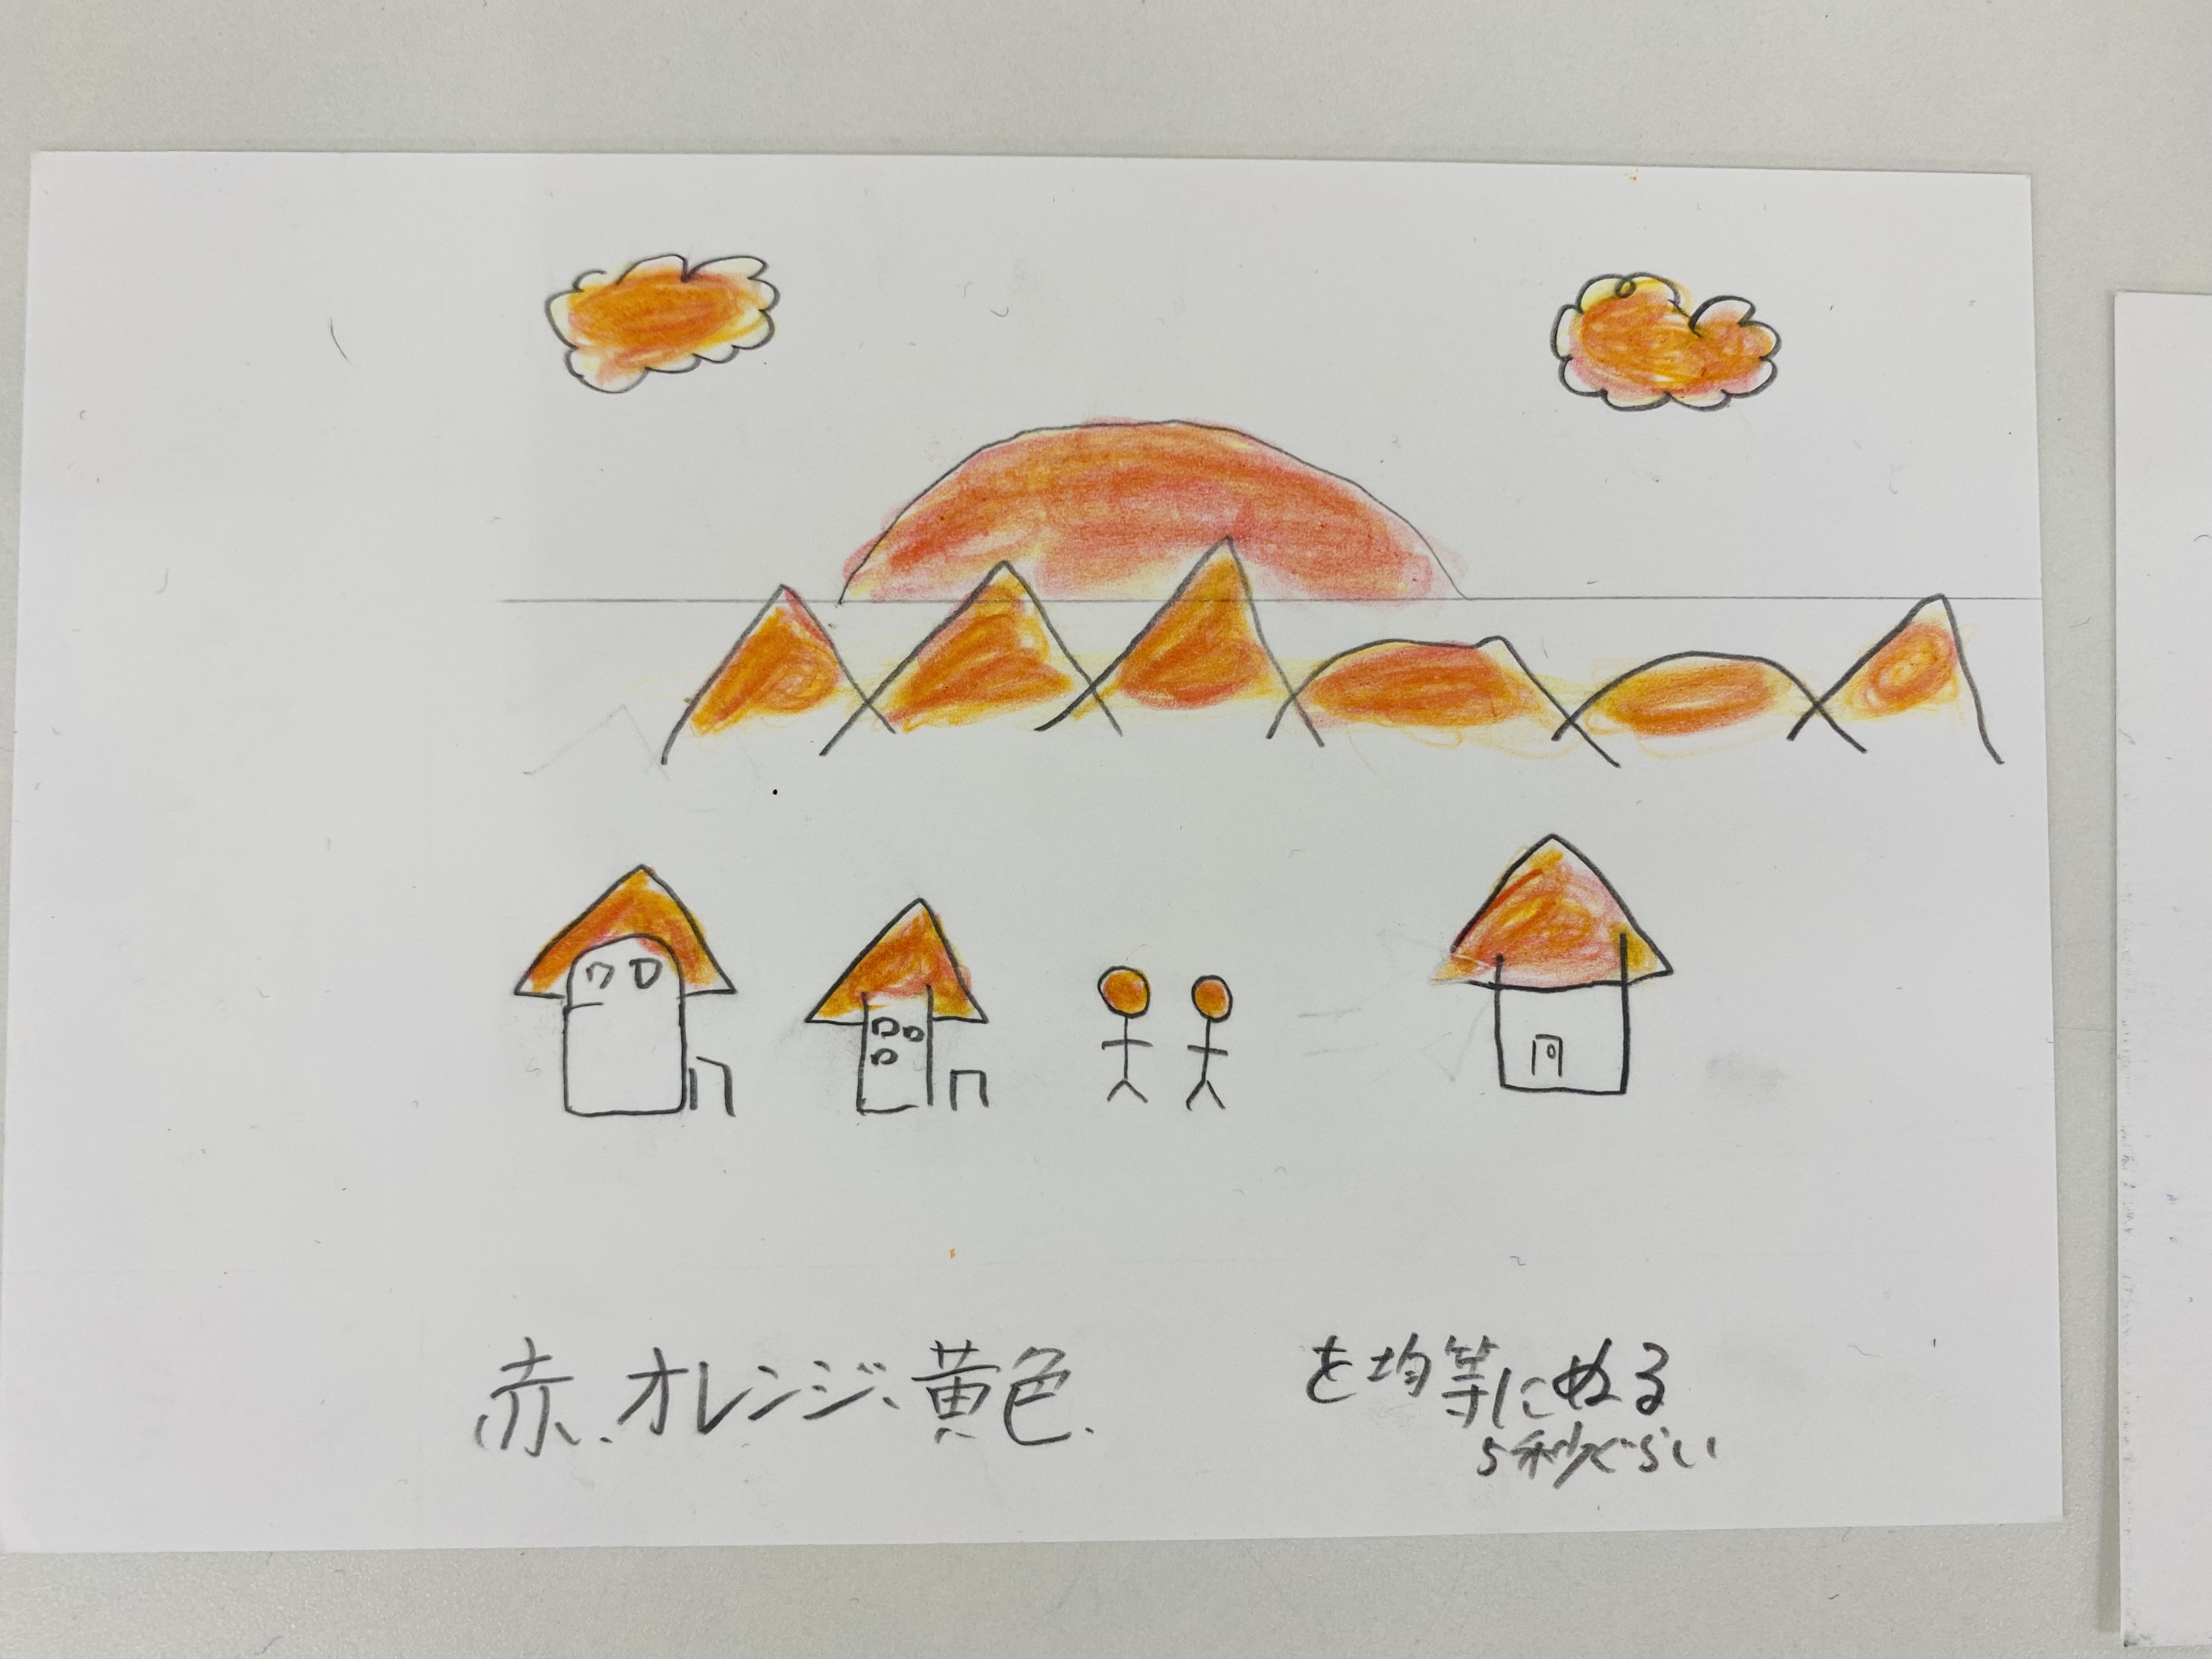 赤、オレンジ、黄色、を均等にぬる
5秒ぐらい